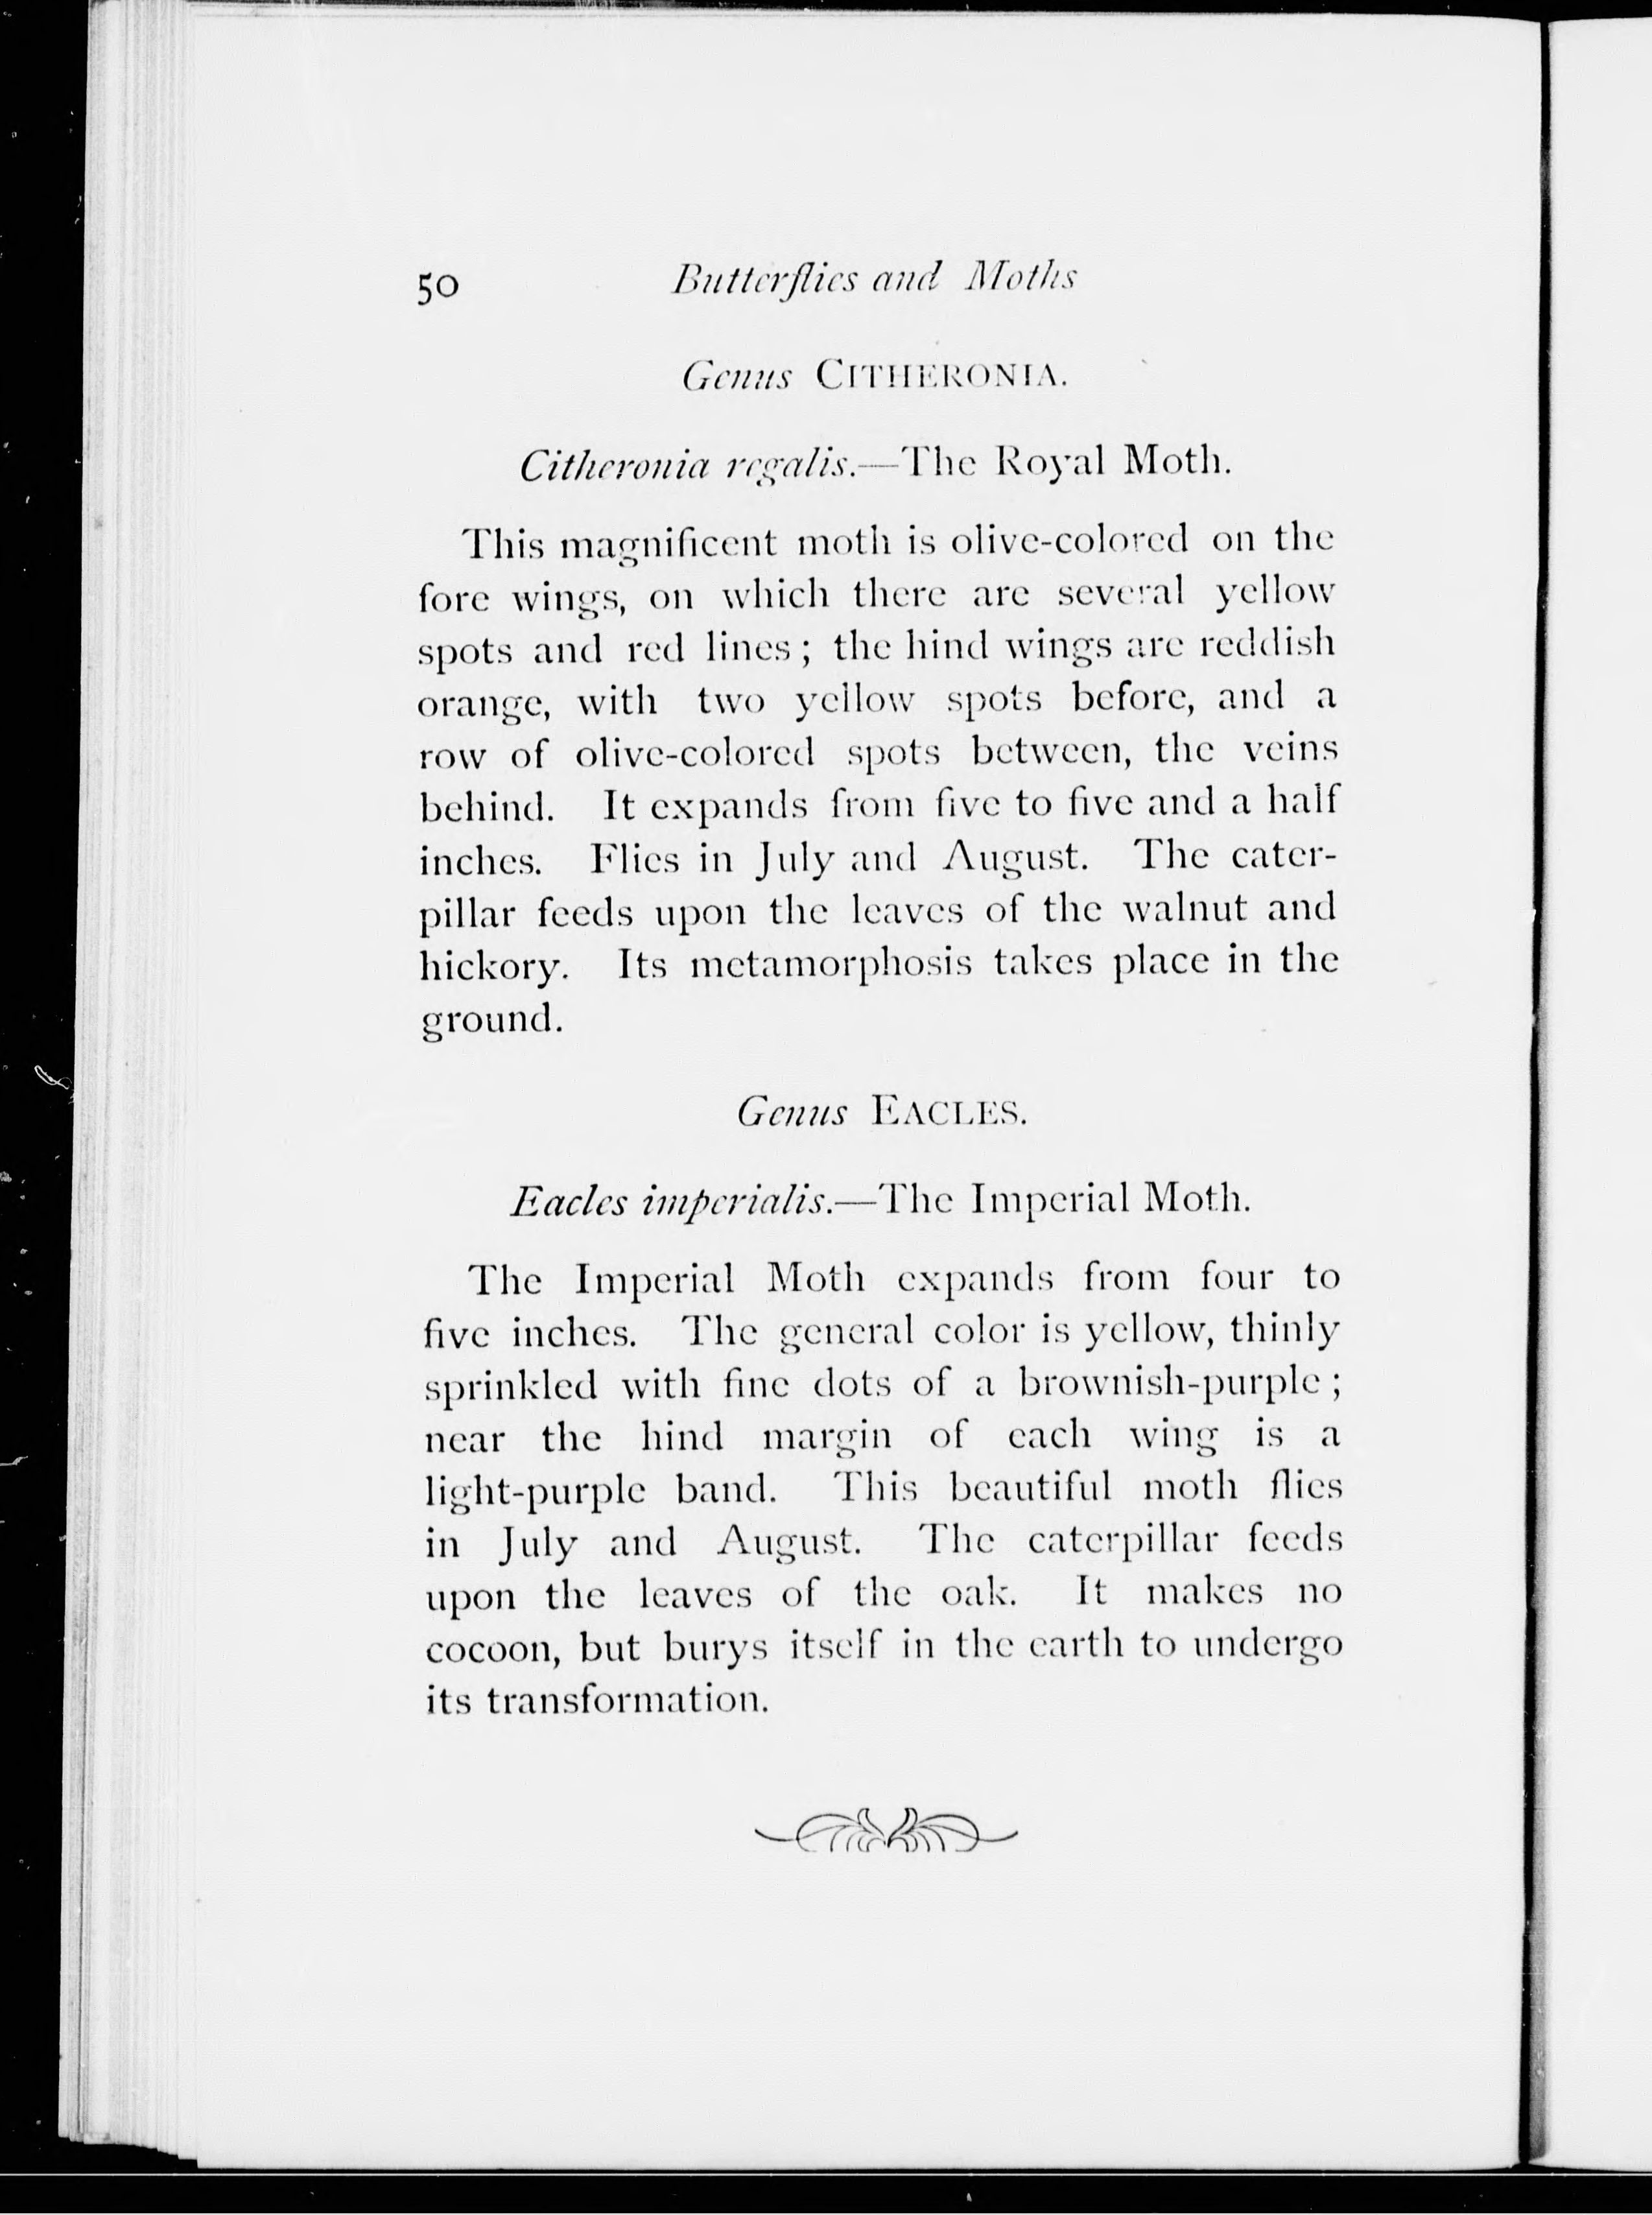 50 Butterflies and Moths
Genus CITHERONIA.
Citheronia regalis.—The Royal Moth.
This magnificent moth is olive-colored on the
fore wings, on which there are several yellow
spots and red lines; the hind wings are reddish
orange, with two yellow spots before, and a
row of olive-colored spots between, the veins
behind. It expands from five to five and a half
inches. Flies in July and August. The cater-
pillar feeds upon the leaves of the walnut and
hickory. Its metamorphosis takes place in the
ground.
Genus EACLES.
Eacles imperialis.—The Imperial Moth.
The Imperial Moth expands from four to
five inches. The general color is yellow, thinly
sprinkled with fine dots of a brownish-purple;
near the hind margin of each wing is a
light-purple band. This beautiful moth flies
in July and August. The caterpillar feeds
upon the leaves of the oak. It makes no
cocoon, but burys itself in the earth to undergo
its transformation.